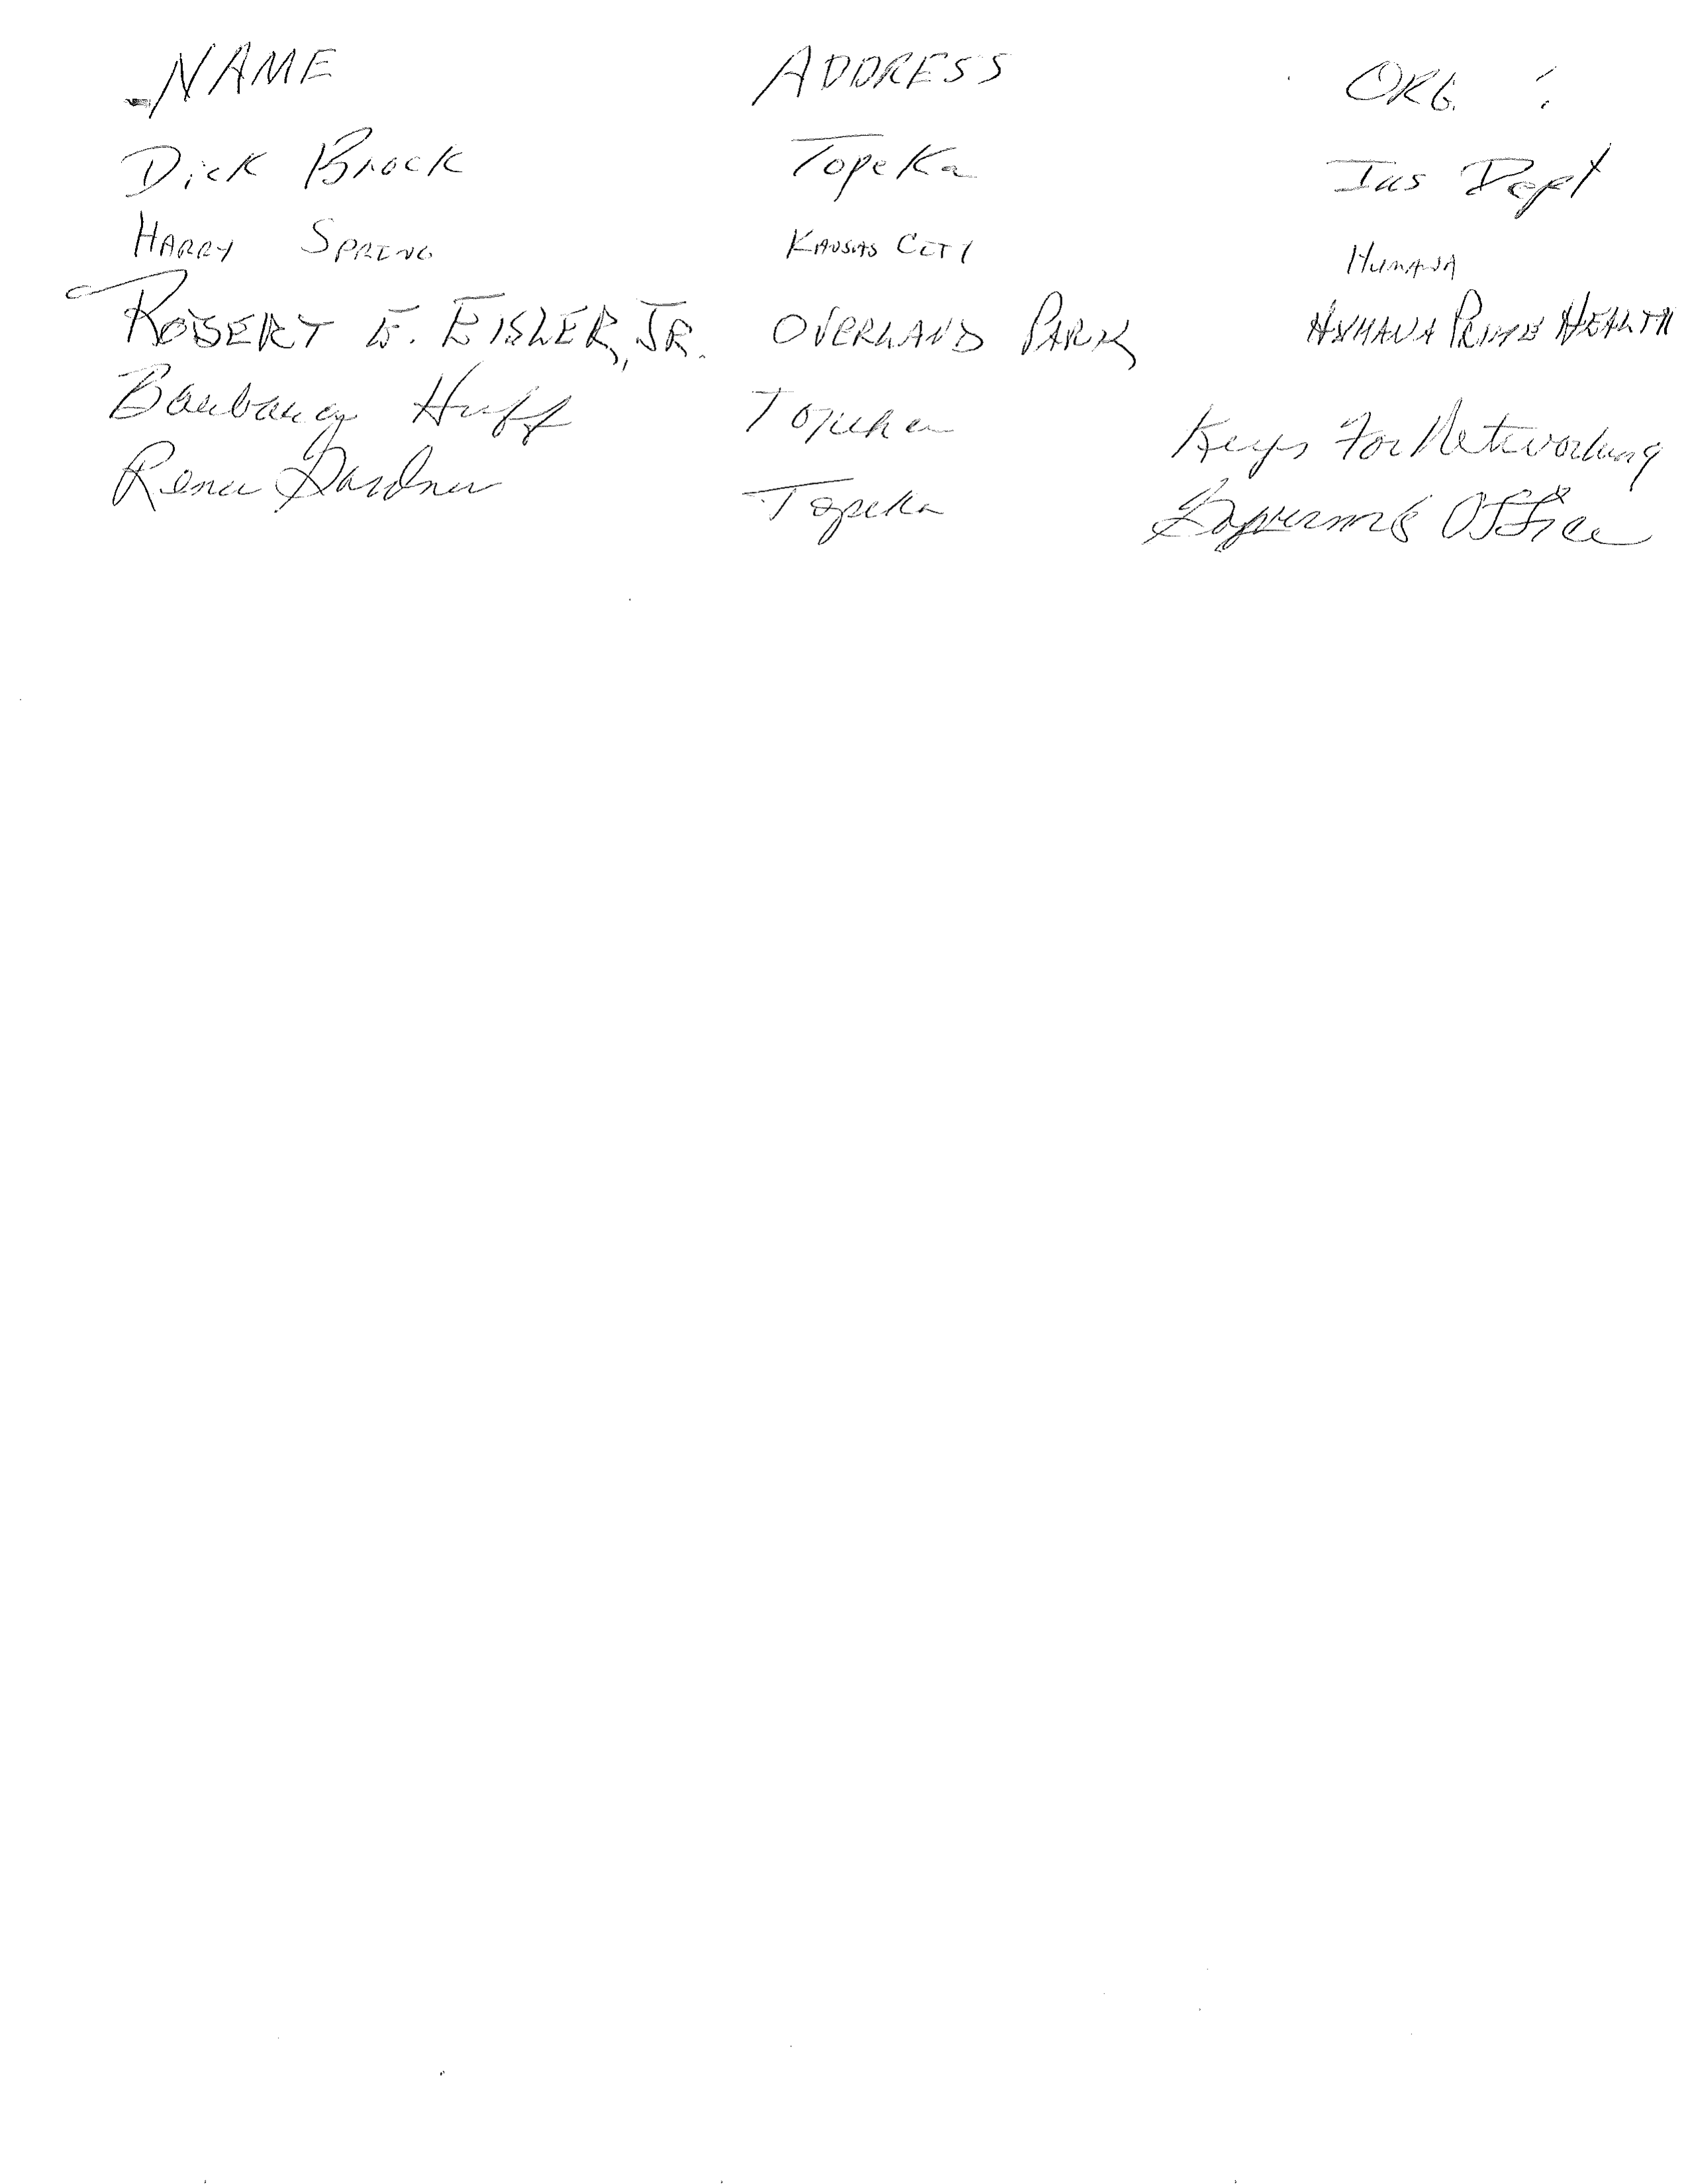 NAME ADDRESS ORG.
Dick Brock Topeka Ins Dept
HARRY SPRING KANSAS CITY HUMANA
ROBERT E. EISLER, JR. OVERLAND PARK HUMANA PRIME HEALTH
Barbara Huff Topeka Keys For Networking
Gardner Topeka Governor's Office